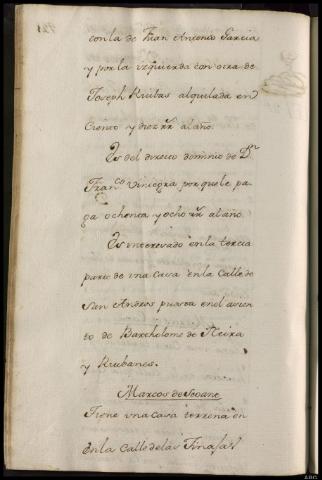 con la de Juan Antonio Garcia
y por la izquierda con otra de
Joseph Rivbas alquilada en
Ciento y diez rr al año.
Es del directo dominio de Dn
Franco Viniegra por que le pa
ga ochenta y ocho rr al año
Es interesado en la tercia
parte de vna Casa en la Calle de
San Andres puesta en el asien
to de Bartholome de Neira
y Rubanes.
Marcos de Seoane
Tiene vna casa terrena en
en la Calle de las Tinajas